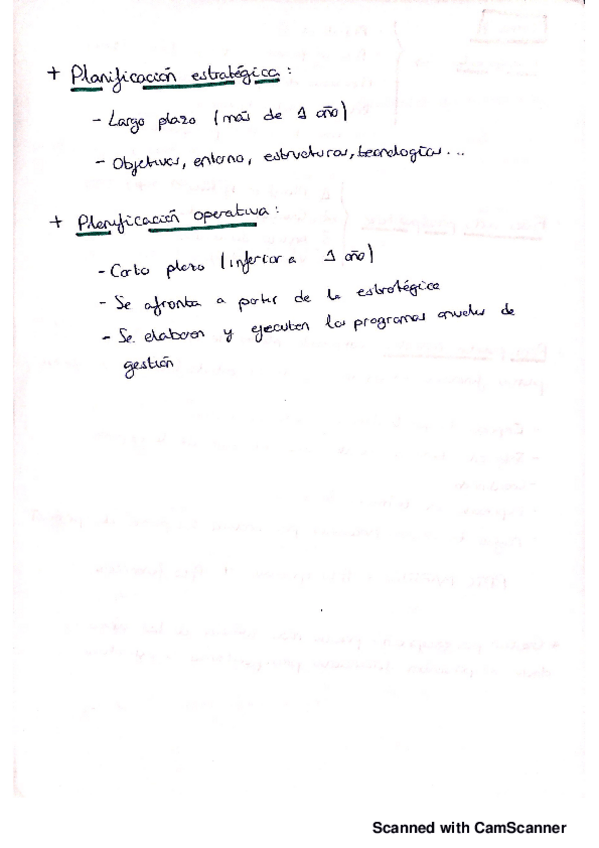 + Planificación estratégica:
- Largo plazo (más de 1 año)
- Objetivos, entorno, estructuras, tecnologías...
+ Planificación operativa:
- Corto plazo (inferior a 1 año)
- Se afronta a partir de la estratégica
- Se elaboran y ejecutan los programas anuales de
gestión
Scanned with CamScanner